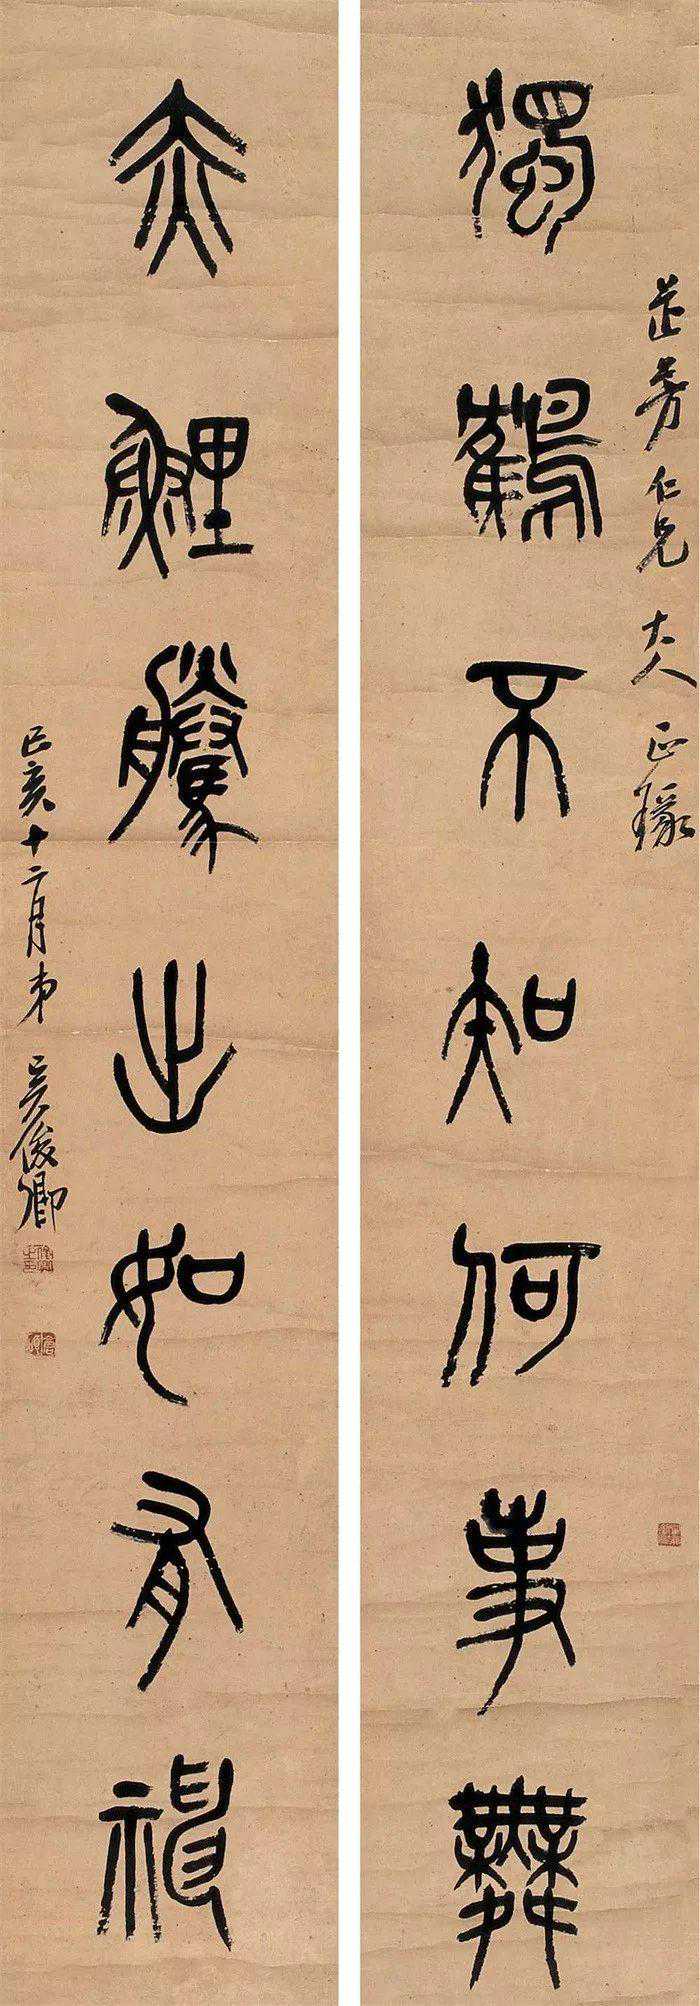 獨鶴不知何事舞
芷芳仁兄大人正琢
赤鯉騰㞢如有神
己亥十二月弟吳俊卿